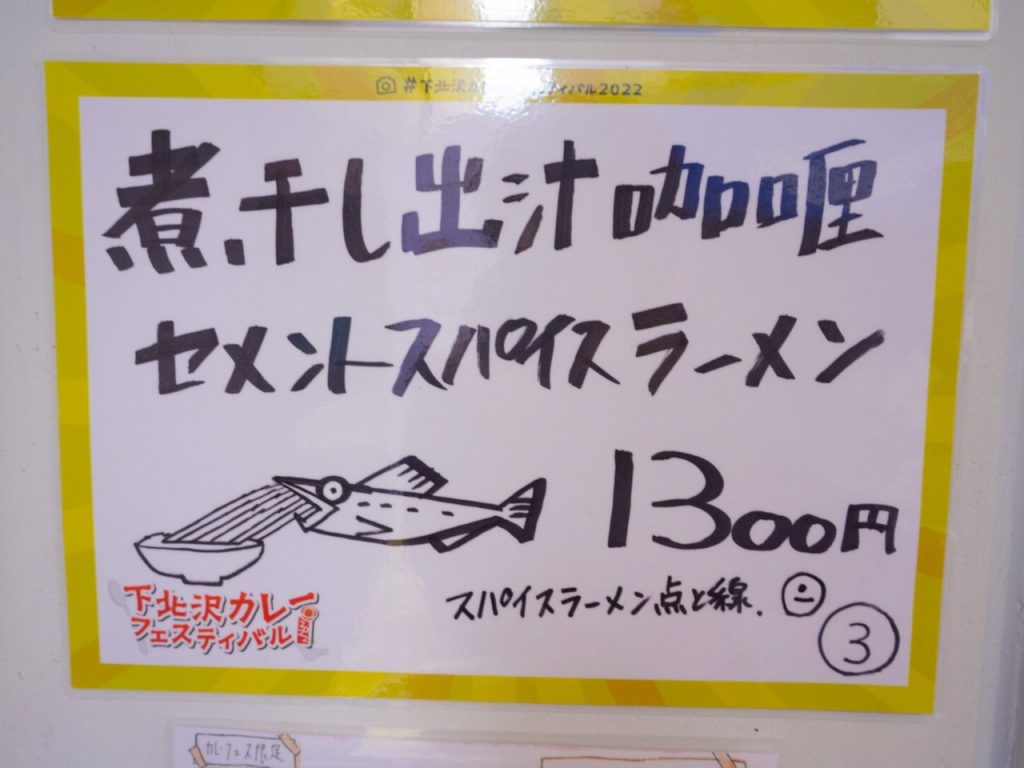 #下北沢カ ティバル2022
煮干し出汁咖喱
セメントスパイスラーメン
1300円
スパイスラーメン点と線.
3
下北沢カレー
フェスティバル
カレーフェス限定